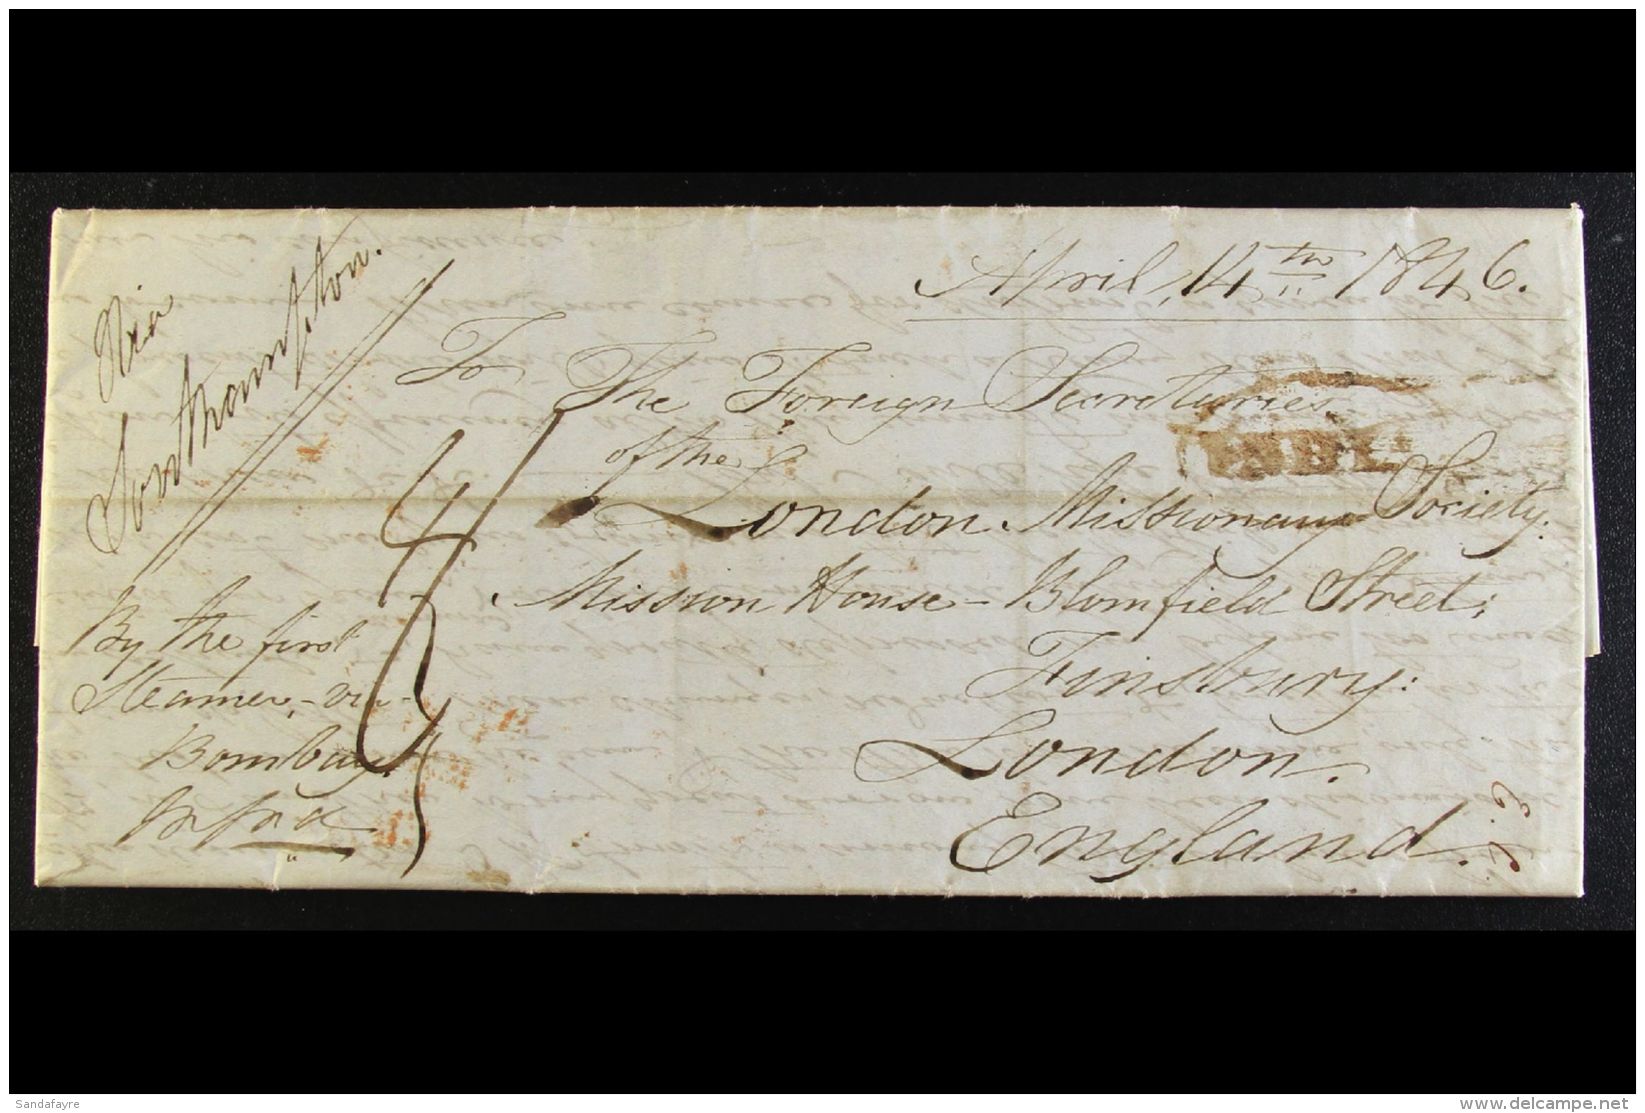 April, 14th 1846.
Via
Southampton.
To
The Foreign Secretaries
of the
London Missionary Society.
Mission House - Blomfield Street;
Finsbury:
London.
England.
By the first
Steamer, - via -
Bombay.
INDIA
Sandafayre
delcampe.net